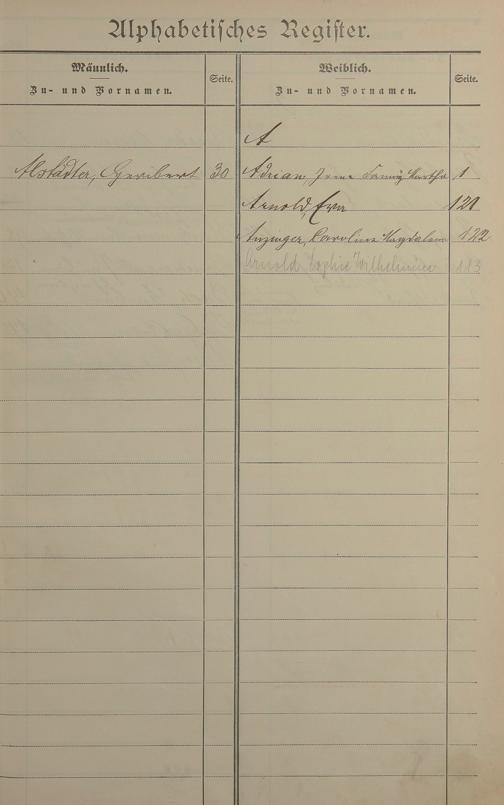 Alphabetisches Register.
Männlich.
Zu- und Vornamen.
Seite.
Weiblich.
Zu- und Vornamen.
Seite.
A
Alstädter, Heribert 30
Adrian, Irene Fanny Martha 1
Arnold, Eva 121
Anzenger, Caroline Magdalena 122
Arnold Sophie Wilhelmine 113